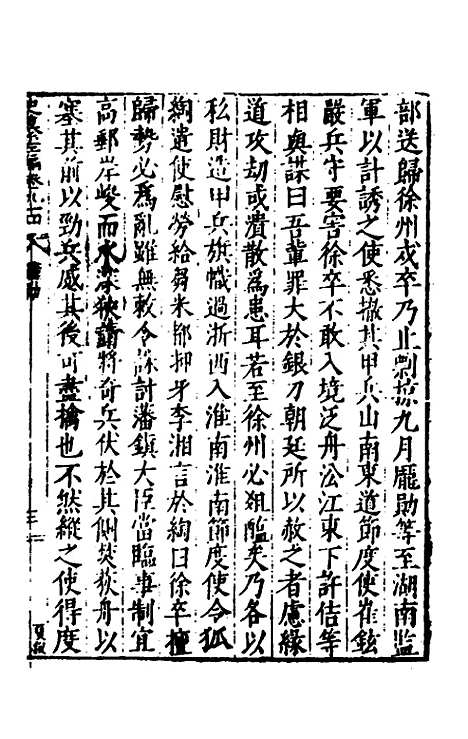 部送歸徐州戍卒乃止剽掠九月龐勛等至湖南監
軍以計誘之使悉撤其甲兵山南東道節度使崔鉉
嚴兵守要害徐卒不敢入境泛舟㳂江東下許佶等
相與謀曰吾輩罪大於銀刀朝廷所以赦之者慮緣
道攻劫或潰散爲患耳若至徐州必葅醢矣乃各以
私財造甲兵旗幟過浙西入淮南淮南節度使令狐
綯遣使慰勞給芻米都押牙李湘言於綯曰徐卒擅
歸勢必爲亂雖無敕令誅討藩鎮大臣當臨事制宜
高郵岸峻而水深狹請將奇兵伏於其側焚荻舟以
塞其前以勁兵蹙其後可盡擒也不然縱之使得度